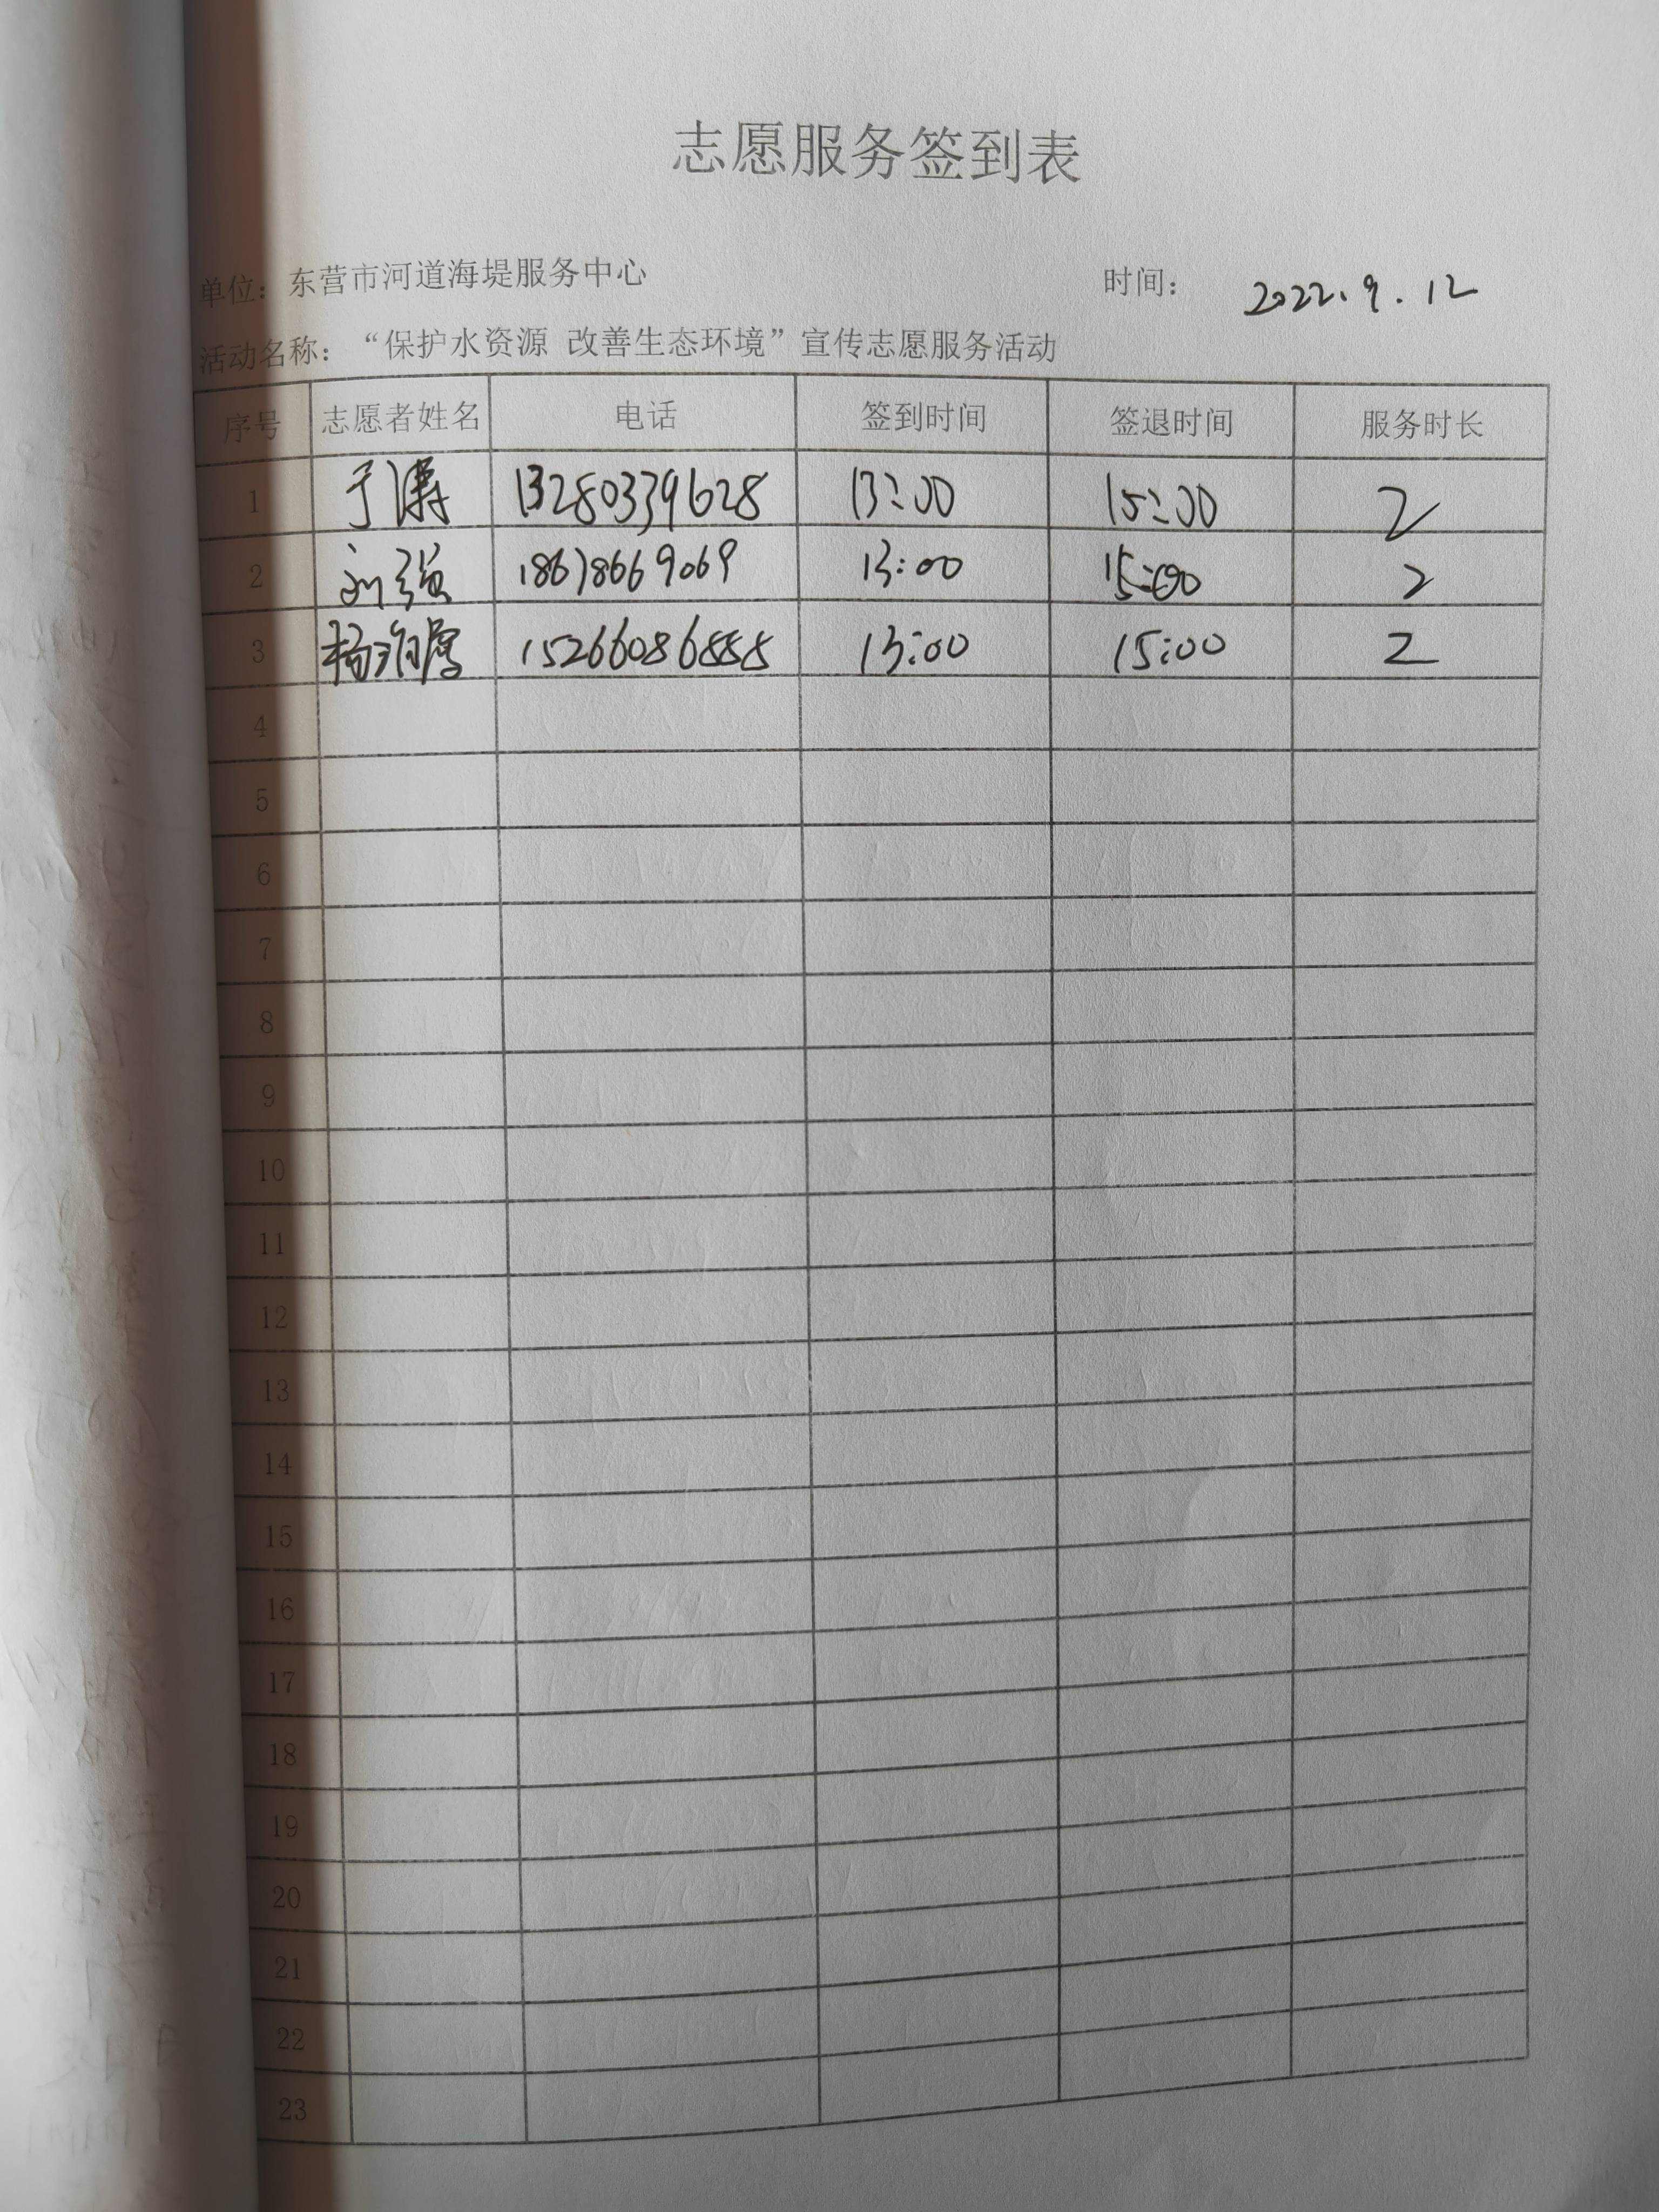 志愿服务签到表
单位：东营市河道海堤服务中心 时间： 2022.9.12
活动名称：“保护水资源 改善生态环境”宣传志愿服务活动
序号 志愿者姓名 电话 签到时间 签退时间 服务时长
1 于涛 13280339628 13:00 15:00 2
2 刘强 18678669069 13:00 15:00 2
3 杨 15266086888 13:00 15:00 2
4
5
6
7
8
9
10
11
12
13
14
15
16
17
18
19
20
21
22
23